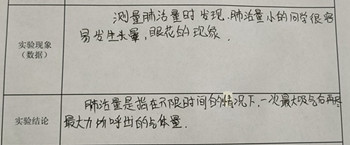 测量肺活量时发现,肺活量小的同学很容
易发生头晕,眼花的现象.
实验现象
(数据)
肺活量是指在不限时间的情况下,一次最大吸气后再尽
最大力所呼出的气体量.
实验结论